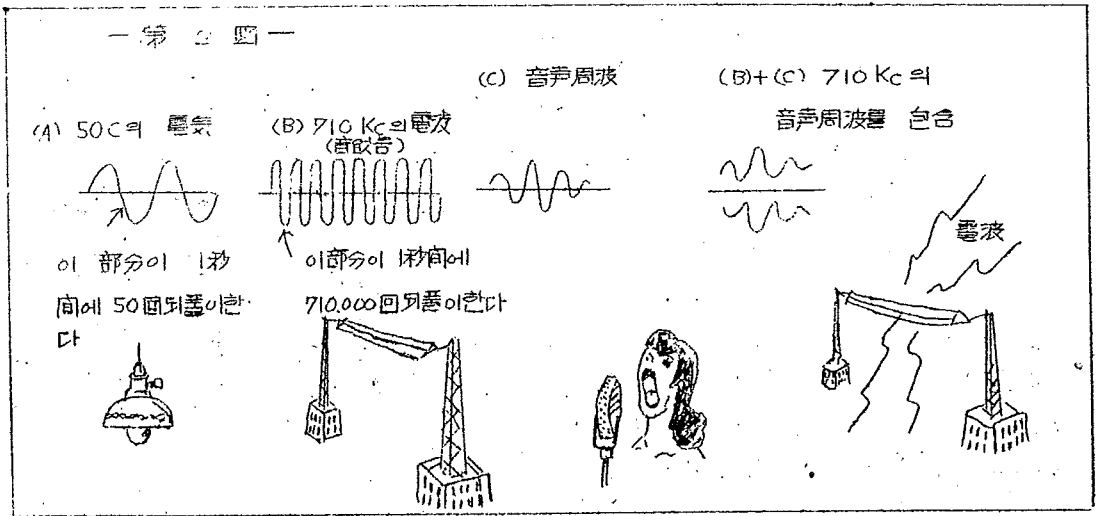 一 第 2 図 一
(A) 50C의 電気
이 部分이 1秒
間에 50回되풀이한
다
(B) 710 KC의 電波
이部分이 1秒間에
710.000回되풀이한다
(C) 音声周波
(B)+(C) 710 KC의
音声周波를 包含
電波